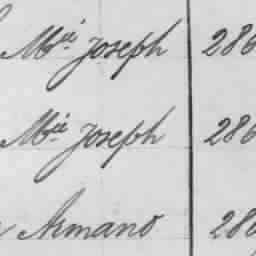 Mie Joseph 286
Mie Joseph 286
Armand 286